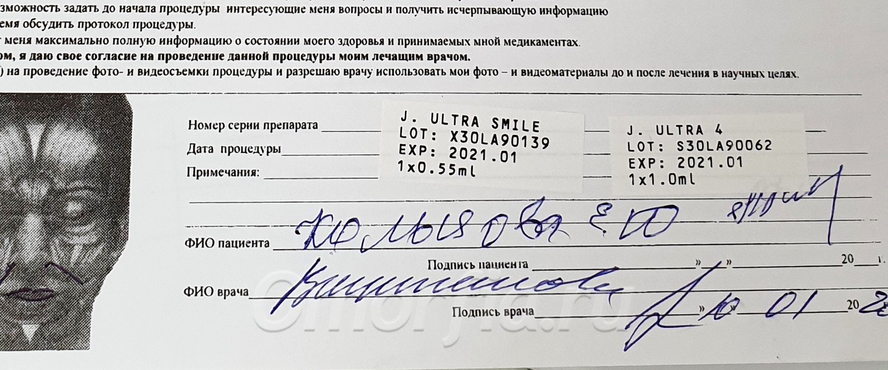 зможность задать до начала процедуры интересующие меня вопросы и получить исчерпывающую информацию
емя обсудить протокол процедуры.
меня максимально полную информацию о состоянии моего здоровья и принимаемых мной медикаментах.
ом, я даю свое согласие на проведение данной процедуры моим лечащим врачом.
) на проведение фото- и видеосъемки процедуры и разрешаю врачу использовать мои фото – и видеоматериалы до и после лечения в научных целях.
Номер серии препарата
Дата процедуры
Примечания:
J. ULTRA SMILE
LOT: X30LA90139
EXP: 2021.01
1x0.55ml
J. ULTRA 4
LOT: S30LA90062
EXP: 2021.01
1x1.0ml
ФИО пациента
Подпись пациента » » 20 г.
ФИО врача
Подпись врача » 10 » 01 20
Otmoryla.ru